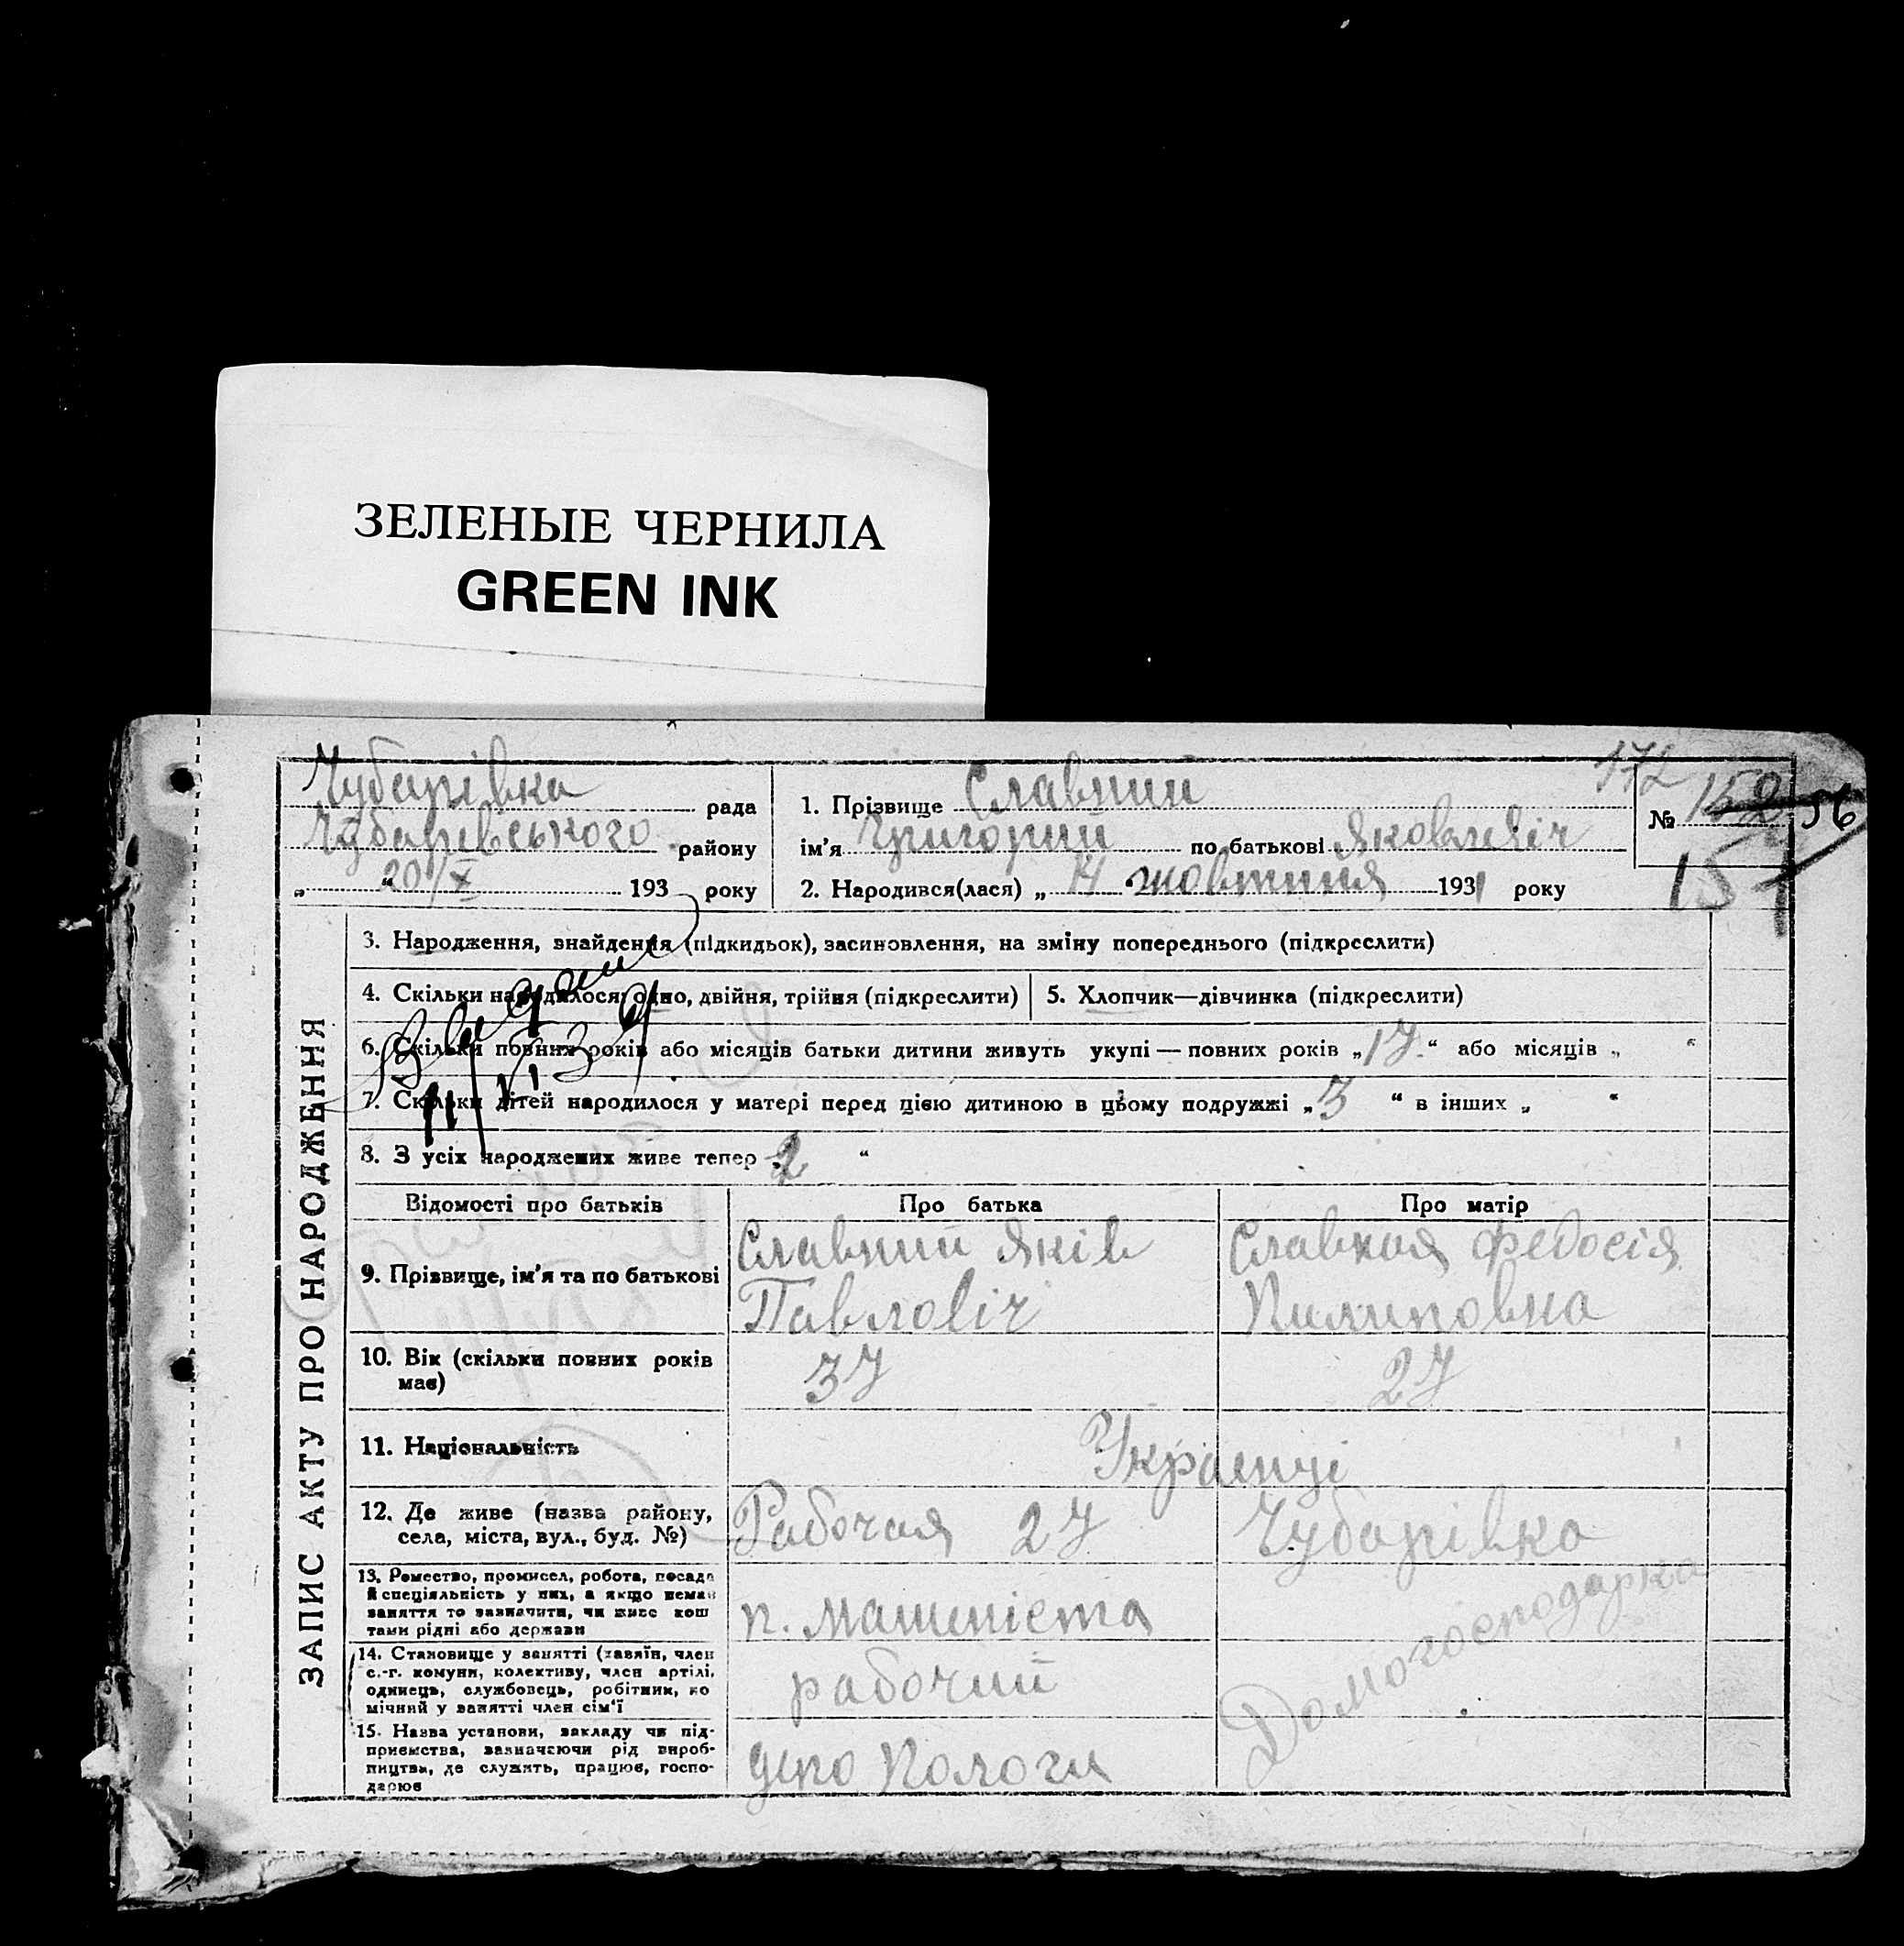 ЗЕЛЕНЫЕ ЧЕРНИЛА
GREEN INK
Чубарівка рада
Чубарівського району
„ 20/X 193 року
1. Прізвище Славний
ім'я Григорий по батькові Яковлевіч
2. Народився(лася) „ 14 “ жовтиня 1931 року
172
№ 152 56
157
ЗАПИС АКТУ ПРО НАРОДЖЕННЯ
3. Народження, знайдення (підкидьок), засиновлення, на зміну попереднього (підкреслити)
4. Скільки народилося: одно, двійня, трійня (підкреслити)
5. Хлопчик—дівчинка (підкреслити)
6. Скільки повних років або місяців батьки дитини живуть укупі — повних років „ 17 “ або місяців „ “
7. Скільки дітей народилося у матері перед цією дитиною в цьому подружжі „ 3 “ в інших „ “
8. З усіх народжених живе тепер „ 2 “
Відомості про батьків Про батька Про матір
9. Прізвище, ім'я та по батькові
Славний Яків
Павловіч
Славная Федосія
Пилиповна
10. Вік (скільки повних років
має)
37
27
11. Національність
Украенці
12. Де живе (назва району,
села, міста, вул., буд. №)
Рабочая 27
Чубарівка
13. Ремество, промисел, робота, посада
й спеціяльність у них, а якщо немає
заняття то зазначити, чи живе кош
тами рідні або держави
п. машеніста
Домогосподарка
14. Становище у занятті (хазяїн, член
с.-г. комуни, колективу, член артілі,
одинець, службовець, робітник, по
мічний у занятті член сім'ї
рабочий
15. Назва установи, закладу чи під-
приємства, зазначаючи рід вироб-
ництва, де служить, працює, госпо-
дарює
депо Пологи